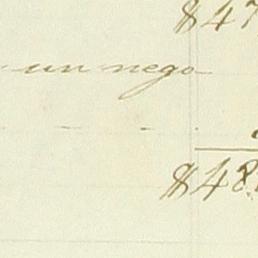 $47
un nego
$48